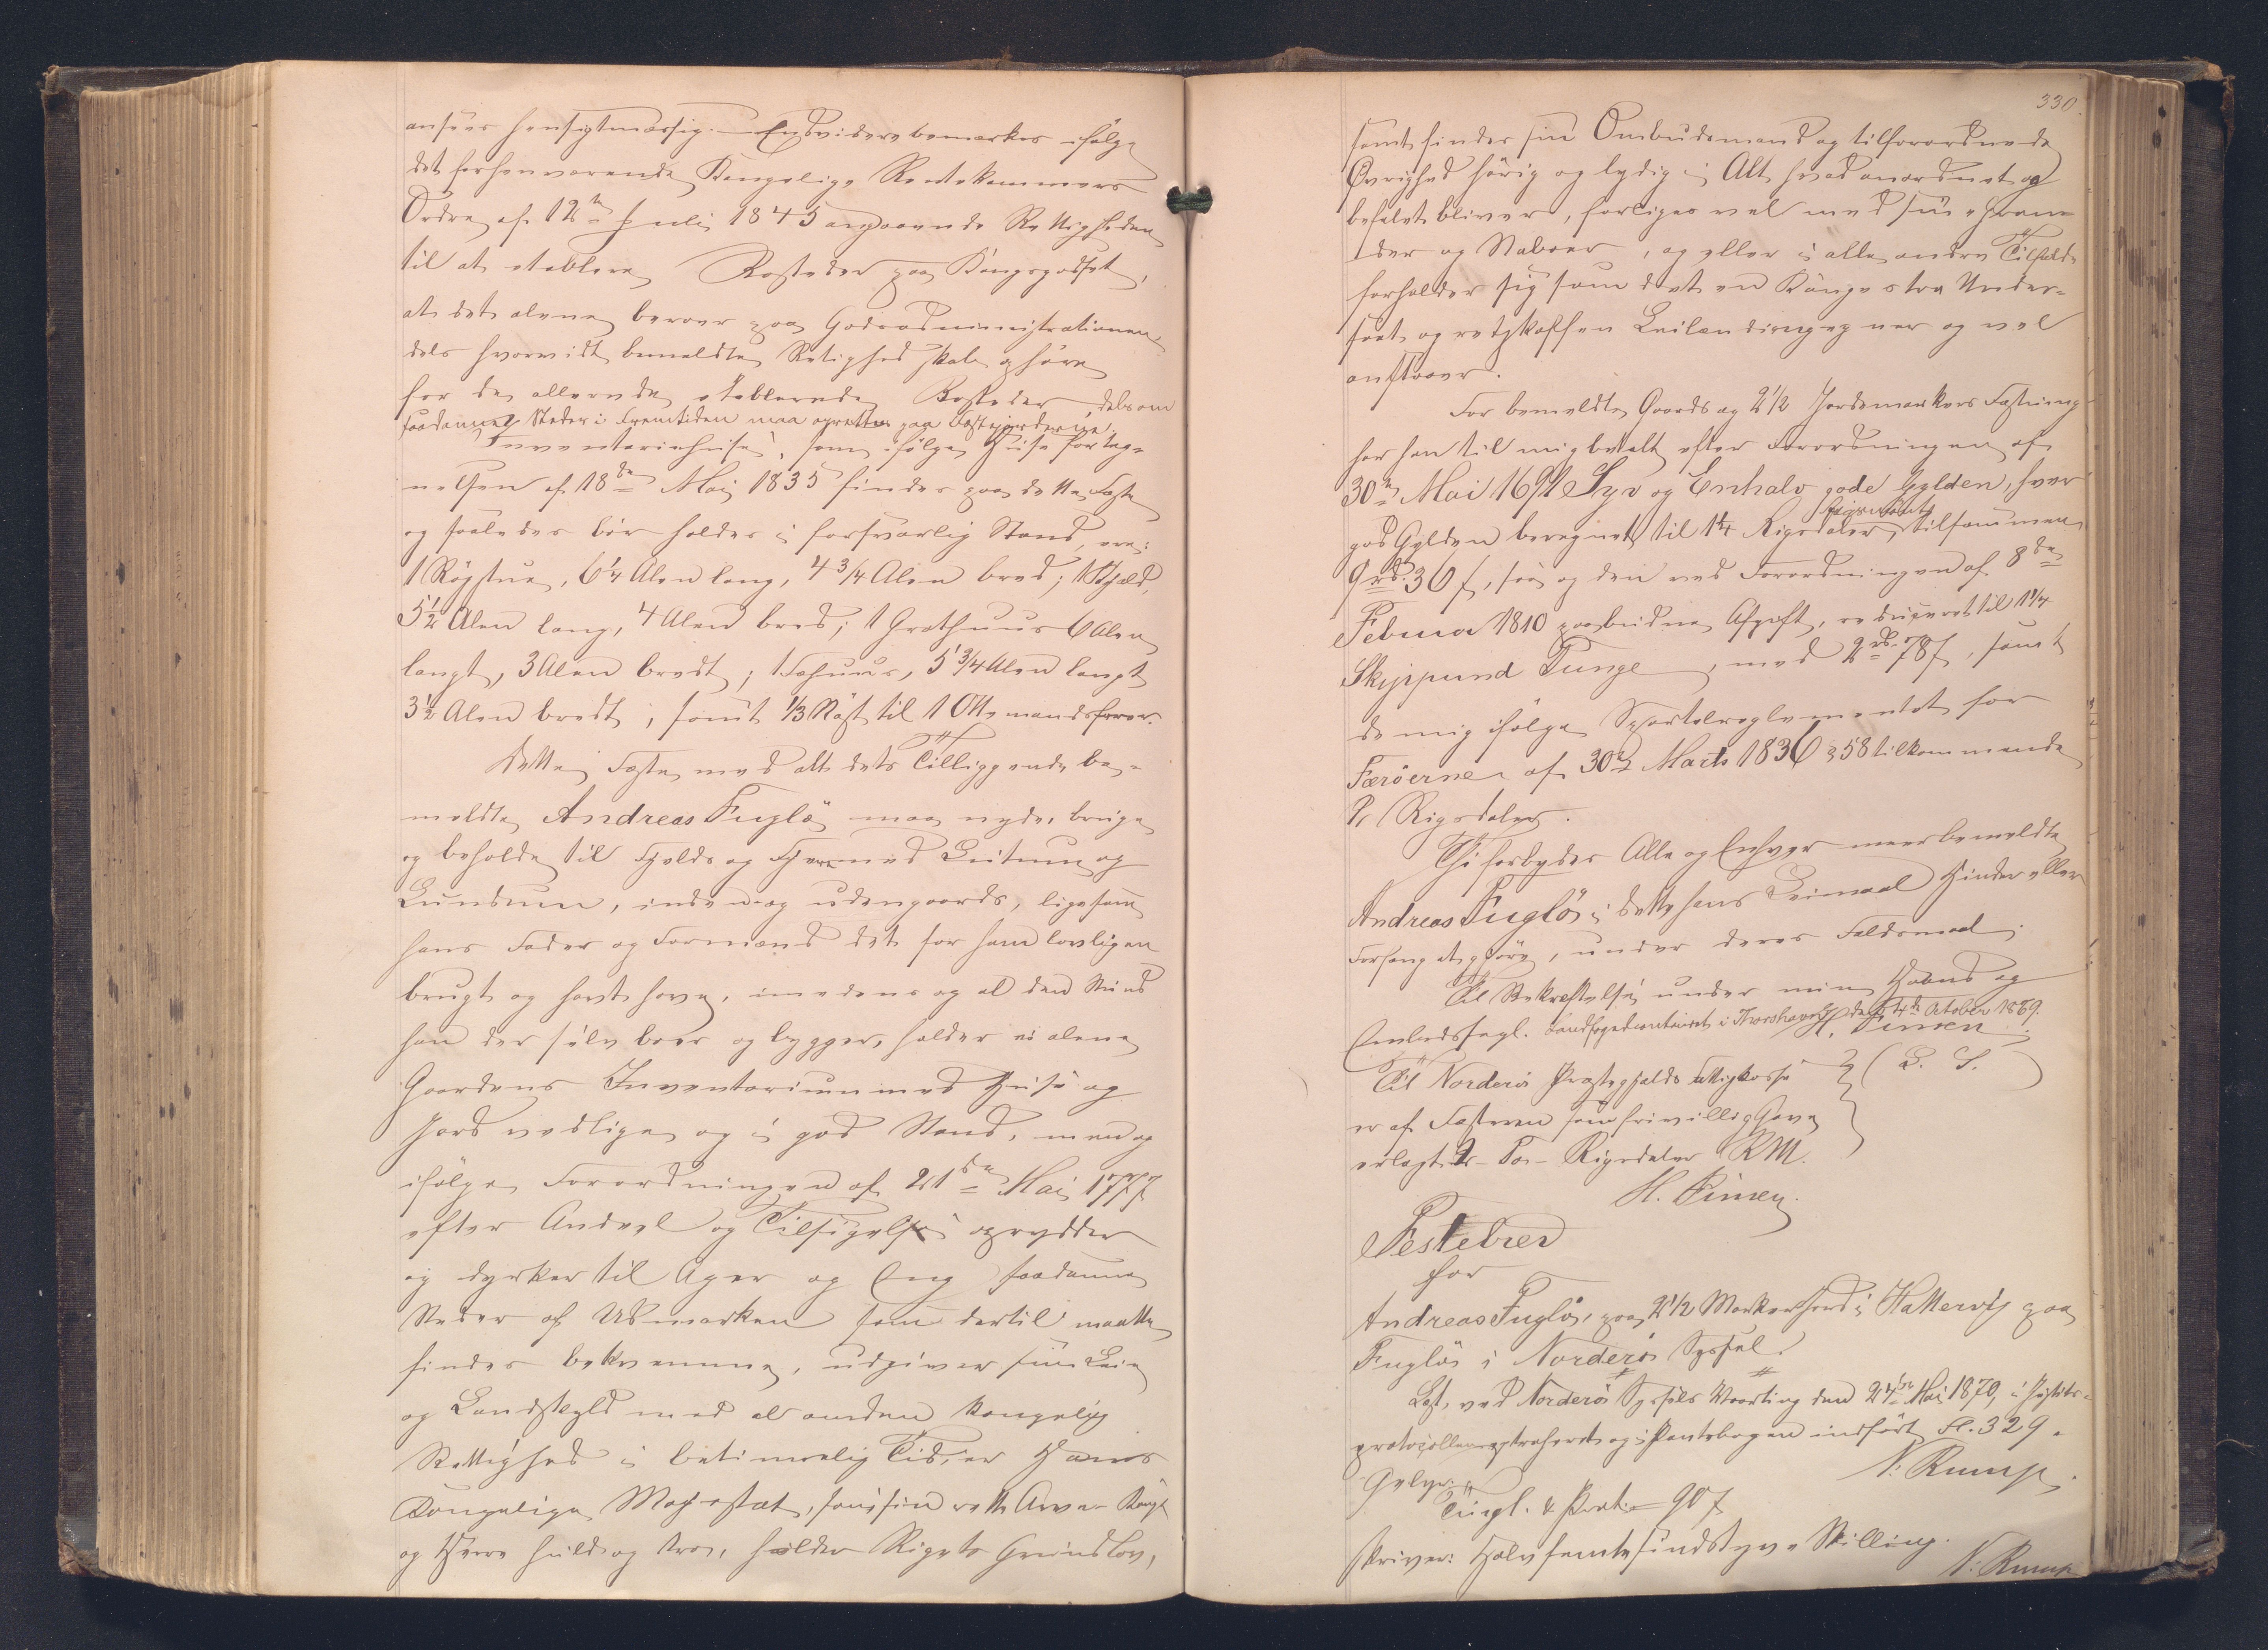 ansees hensigtmæssig. – Endvidere bemærkes ifølge
det forhenværende Kongelige Rentekammers
Ordre af 12te Juli 1845 angaaende Rettigheden
til at etablere Bosteder paa Kongsgodset,
at det alene beroer paa Godsadministrationen
dels hvorvidt bemeldte Rettighed skal ophøre
for de allerede etablerede Bosteder, dels om
saadanne Steder i Fremtiden maa oprettes paa Fæstejorderne.
Inventariehuse, som ifølge Huse forteg-
nelsen af 18de Mai 1835 findes paa dette Fæste
og saaledes bør holdes i forsvarlig Stand, ere:
1 Røgstue, 6¼ Alen lang, 4¾ Alen bred; 1 Hjeld,
5½ Alen lang, 4 Alen bred; 1 Grothuus 6 Alen
langt, 3 Alen bredt; 1 Fæhuus, 5¾ Alen langt
3½ Alen bredt, samt ⅓ Nøst til 1 Ottemandsfarer.
Dette Fæste med alt dets Tilliggende be-
meldte Andreas Fuglö maa nyde, bruge
og beholde til Fjelds og Fjære med Luttum og
Lundum, inden og udengaards, ligesom
hans Fader og Formænd det før ham lovligen
brugt og havt have, imedens og al den Stund
han der selv boer og bygger, holder ei alene
Gaardens Inventarium med Huse og
Jord vedlige og i god Stand, men og
ifølge Forordningen af 21de Mai 1777
efter Anviis og Tilsigelse oprydder
og dyrker til Ager og Eng saadanne
Steder af Udmarken som dertil maatte
findes beqvemme, udgiver sin Leie
og Landskyld med al anden kongelig
Rettighed i betimelig Tid, er Hans
Kongelige Majestæt, som sin rette Arve-Konge
og Herre huld og tro, holder Rigets Grundlov,
330.
samt findes sin Ombudsmand og tilforordnede
Øvrighed hørig og lydig i Alt hvad anordnet og
befalet bliver, forliges vel med sine Gran-
der og Naboer, og ellers i alle andre Tilfælde
forholder sig som det en Konge tro Under-
saat og retskaffen Leilænding egner og vel
anstaaer.
For bemeldte Gaards og 2½ Jordemarkers Fæstning
har han til mig betalt efter Forordningen af
30te Mai 1691 Syv og Enhalv gode Gylden, hver
god Gylden beregnet til 1¼ Rigsdaler Rigsmønt, tilsammen
9 rd. 30 ß, saa og den ved Forordningen af 8de
Februar 1810 paabudne Afgift, reduceret til 1¼
Skippund Tunge, med 2 rd. 78 ß, samt
de mig ifølge Sportelreglementet for
Færöerne af 30te Marts 1836 § 58 tilkommende
2 Rigsdaler.
Thi forbydes Alle og Enhver meerbemeldte
Andreas Fuglö i dette hans Leiemaal Hinder eller
Forfang at gjøre, under deres Faldsmaal.
Til Bekræftelse under min Haand og
Embedssegl. Landfogedcontoiret i Thorshavn den 4de October 1869.
H. Finsen
Til Norderö Præstegjelds Fattigkasse (L. S.)
er af Fæsteren som frivillig Gave
erlagt 2 – To – Rigsdaler RM.
H. Finsen.
Festebrev
for
Andreas Fuglö, paa 2½ Marker Jord i Hattervig paa
Fuglö i Norderö Syssel.
Læst ved Norderö Syssels Vaarting den 24de Mai 1870, i Justits-
protocollen extraheret og i Pantebogen indført Fl. 329.
N: Rump.
Gebyr:
Tingl. & Prot. = 90 ß
skriver: Halvfemtesindstyve Skilling.
N: Rump